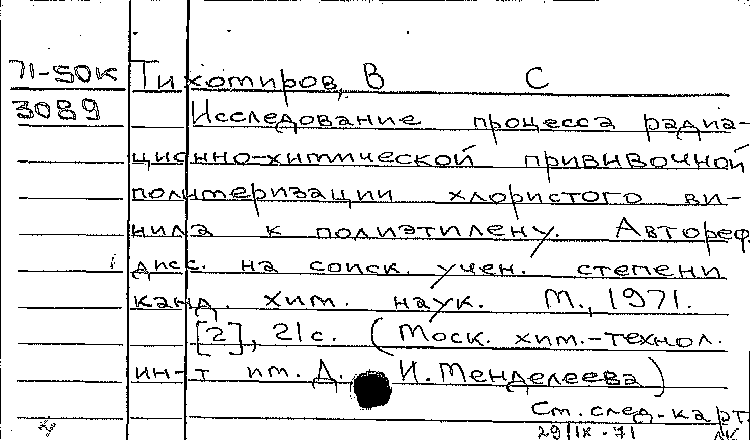 71-50к Тихомиров, В С
3089 Исследование процесса радиа-
ционно-химической прививочной
полимеризации хлористого ви-
нила к полиэтилену. Автореф
дисс. на соиск. учен. степени
канд. хим. наук. М., 1971.
[2], 21с. (Моск. хим.-технол.
ин-т им. Д. И. Менделеева)
См. след. карт.
29/IX-71